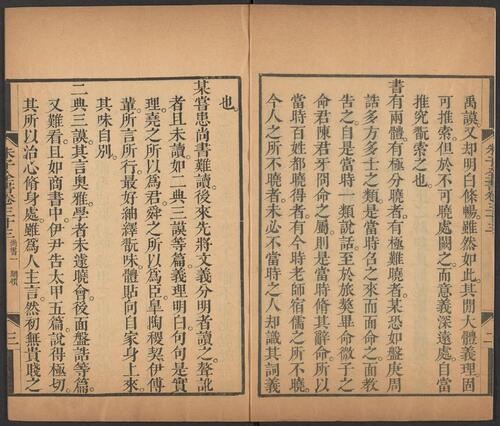 禹謨又却明白條暢雖然如此其間大體義理固
可推索但於不可曉處闕之而意義深遠處自當
推究翫索之也
書有兩體有極分曉者有極難曉者某恐如盤庚周
誥多方多士之類是當時召之來而面命之面教
告之自是當時一類說話至於旅獒畢命微子之
命君陳君牙冏命之屬則是當時脩其辭命所以
當時百姓都曉得者有今時老師宿儒之所不曉
今人之所不曉者未必不當時之人却識其詞義
也
某嘗患尚書難讀後來先將文義分明者讀之聱訛
者且未讀如二典三謨等篇義理明白句句是實
理堯之所以為君舜之所以為臣臯陶稷契伊傅
輩所言所行最好紬繹翫味體貼向自家身上來
其味自別
二典三謨其言奧雅學者未遽曉會後面盤誥等篇
又難看且如商書中伊尹告太甲五篇說得極切
其所以治心脩身處雖為人主言然初無貴賤之
朱子全書卷三十三
尚書一 綱領
三